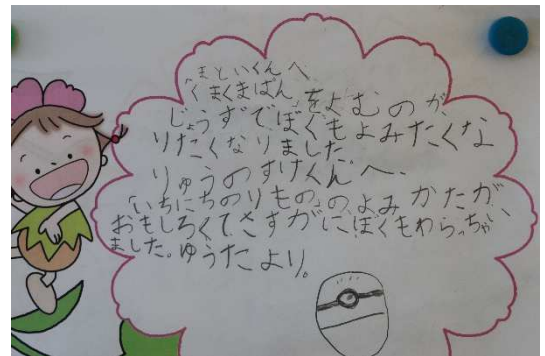 まといくんへ
「くまくまぱん」をよむのが、
じょうずでぼくもよみたくな
りたくなりました。
りゅうのすけくんへ、
「いちにちのりもの」の、よみかたが、
おもしろくてさすがにぼくもわらっちゃい、
ました。ゆうたより。